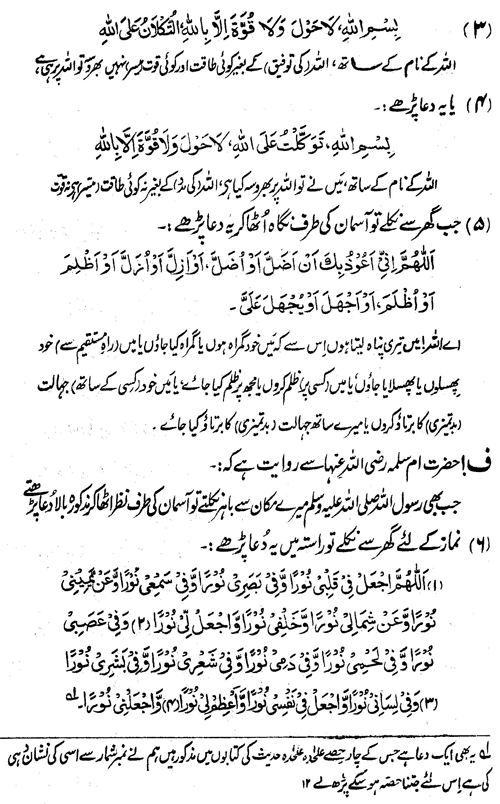 (۳) بِسْمِ اللهِ، لَاحَوْلَ وَلَا قُوَّةَ اِلَّا بِاللهِ، اَلتُّكْلَانُ عَلَى اللهِ
اللہ کے نام کے ساتھ، اللہ (کی توفیق) کے بغیر کوئی طاقت اور کوئی قوت (میسر) نہیں بھروسہ تو اللہ پر ہی ہے،
(۴) یا یہ دعا پڑھے:۔
بِسْمِ اللهِ، تَوَكَّلْتُ عَلَى اللهِ، لَاحَوْلَ وَلَا قُوَّةَ اِلَّا بِاللهِ
اللہ کے نام کے ساتھ، میں نے تو اللہ پر بھروسہ کیا ہے، اللہ (کی مدد) کے بغیر نہ کوئی طاقت (میسر) ہے نہ قوت
(۵) جب گھر سے نکلے تو آسمان کی طرف نگاہ اُٹھا کر یہ دعا پڑھے:۔
اَللّٰهُمَّ اِنِّیْ اَعُوْذُ بِكَ اَنْ اَضِلَّ اَوْ اُضَلَّ، اَوْ اَزِلَّ اَوْ اُزَلَّ اَوْ اَظْلِمَ
اَوْ اُظْلَمَ، اَوْ اَجْهَلَ اَوْ يُجْهَلَ عَلَیَّ۔
اے اللہ! میں تیری پناہ لیتا ہوں اِس سے کہ میں خود گمراہ ہوں یا گمراہ کیا جاؤں یا میں (راہِ مستقیم سے) خود
پھسلوں یا پھسلایا جاؤں، یا میں (کسی پر) ظلم کروں یا مجھ پر ظلم کیا جائے، یا میں خود (کسی کے ساتھ) جہالت
(بدتمیزی) کا برتاؤ کروں یا میرے ساتھ جہالت (بدتمیزی) کا برتاؤ کیا جائے۔
ف! حضرت ام سلمہ رضی اللہ عنہا سے روایت ہے کہ:۔
جب بھی رسول اللہ صلی اللہ علیہ وسلم میرے مکان سے باہر نکلتے تو آسمان کی طرف نظر اٹھا کر مذکورہ بالا دعا پڑھتے
(۶) نماز کے لئے گھر سے نکلے تو راستہ میں یہ دعا پڑھے:۔
(۱) اَللّٰهُمَّ اجْعَلْ فِیْ قَلْبِیْ نُوْرًا وَّفِیْ بَصَرِیْ نُوْرًا وَّفِیْ سَمْعِیْ نُوْرًا وَّعَنْ یَّمِیْنِیْ
نُوْرًا وَّعَنْ شِمَالِیْ نُوْرًا وَّخَلْفِیْ نُوْرًا وَّاجْعَلْ لِّیْ نُوْرًا (۲) وَّفِیْ عَصَبِیْ
نُوْرًا وَّفِیْ لَحْمِیْ نُوْرًا وَّفِیْ دَمِیْ نُوْرًا وَّفِیْ شَعْرِیْ نُوْرًا وَّفِیْ بَشَرِیْ نُوْرًا
(۳) وَّفِیْ لِسَانِیْ نُوْرًا وَّاجْعَلْ فِیْ نَفْسِیْ نُوْرًا وَّاَعْظِمْ لِیْ نُوْرًا (۴) وَّاجْعَلْنِیْ نُوْرًا۔ لہ
لہ یہ بھی ایک دعا ہے جس کے چار حصے علٰحدہ علٰحدہ حدیث کی کتابوں میں مذکور ہیں ہم نے نمبر شمار سے اسی کی نشان دہی
کی ہے اِس لئے جتنا حصہ ہو سکے پڑھ لے ۱۲